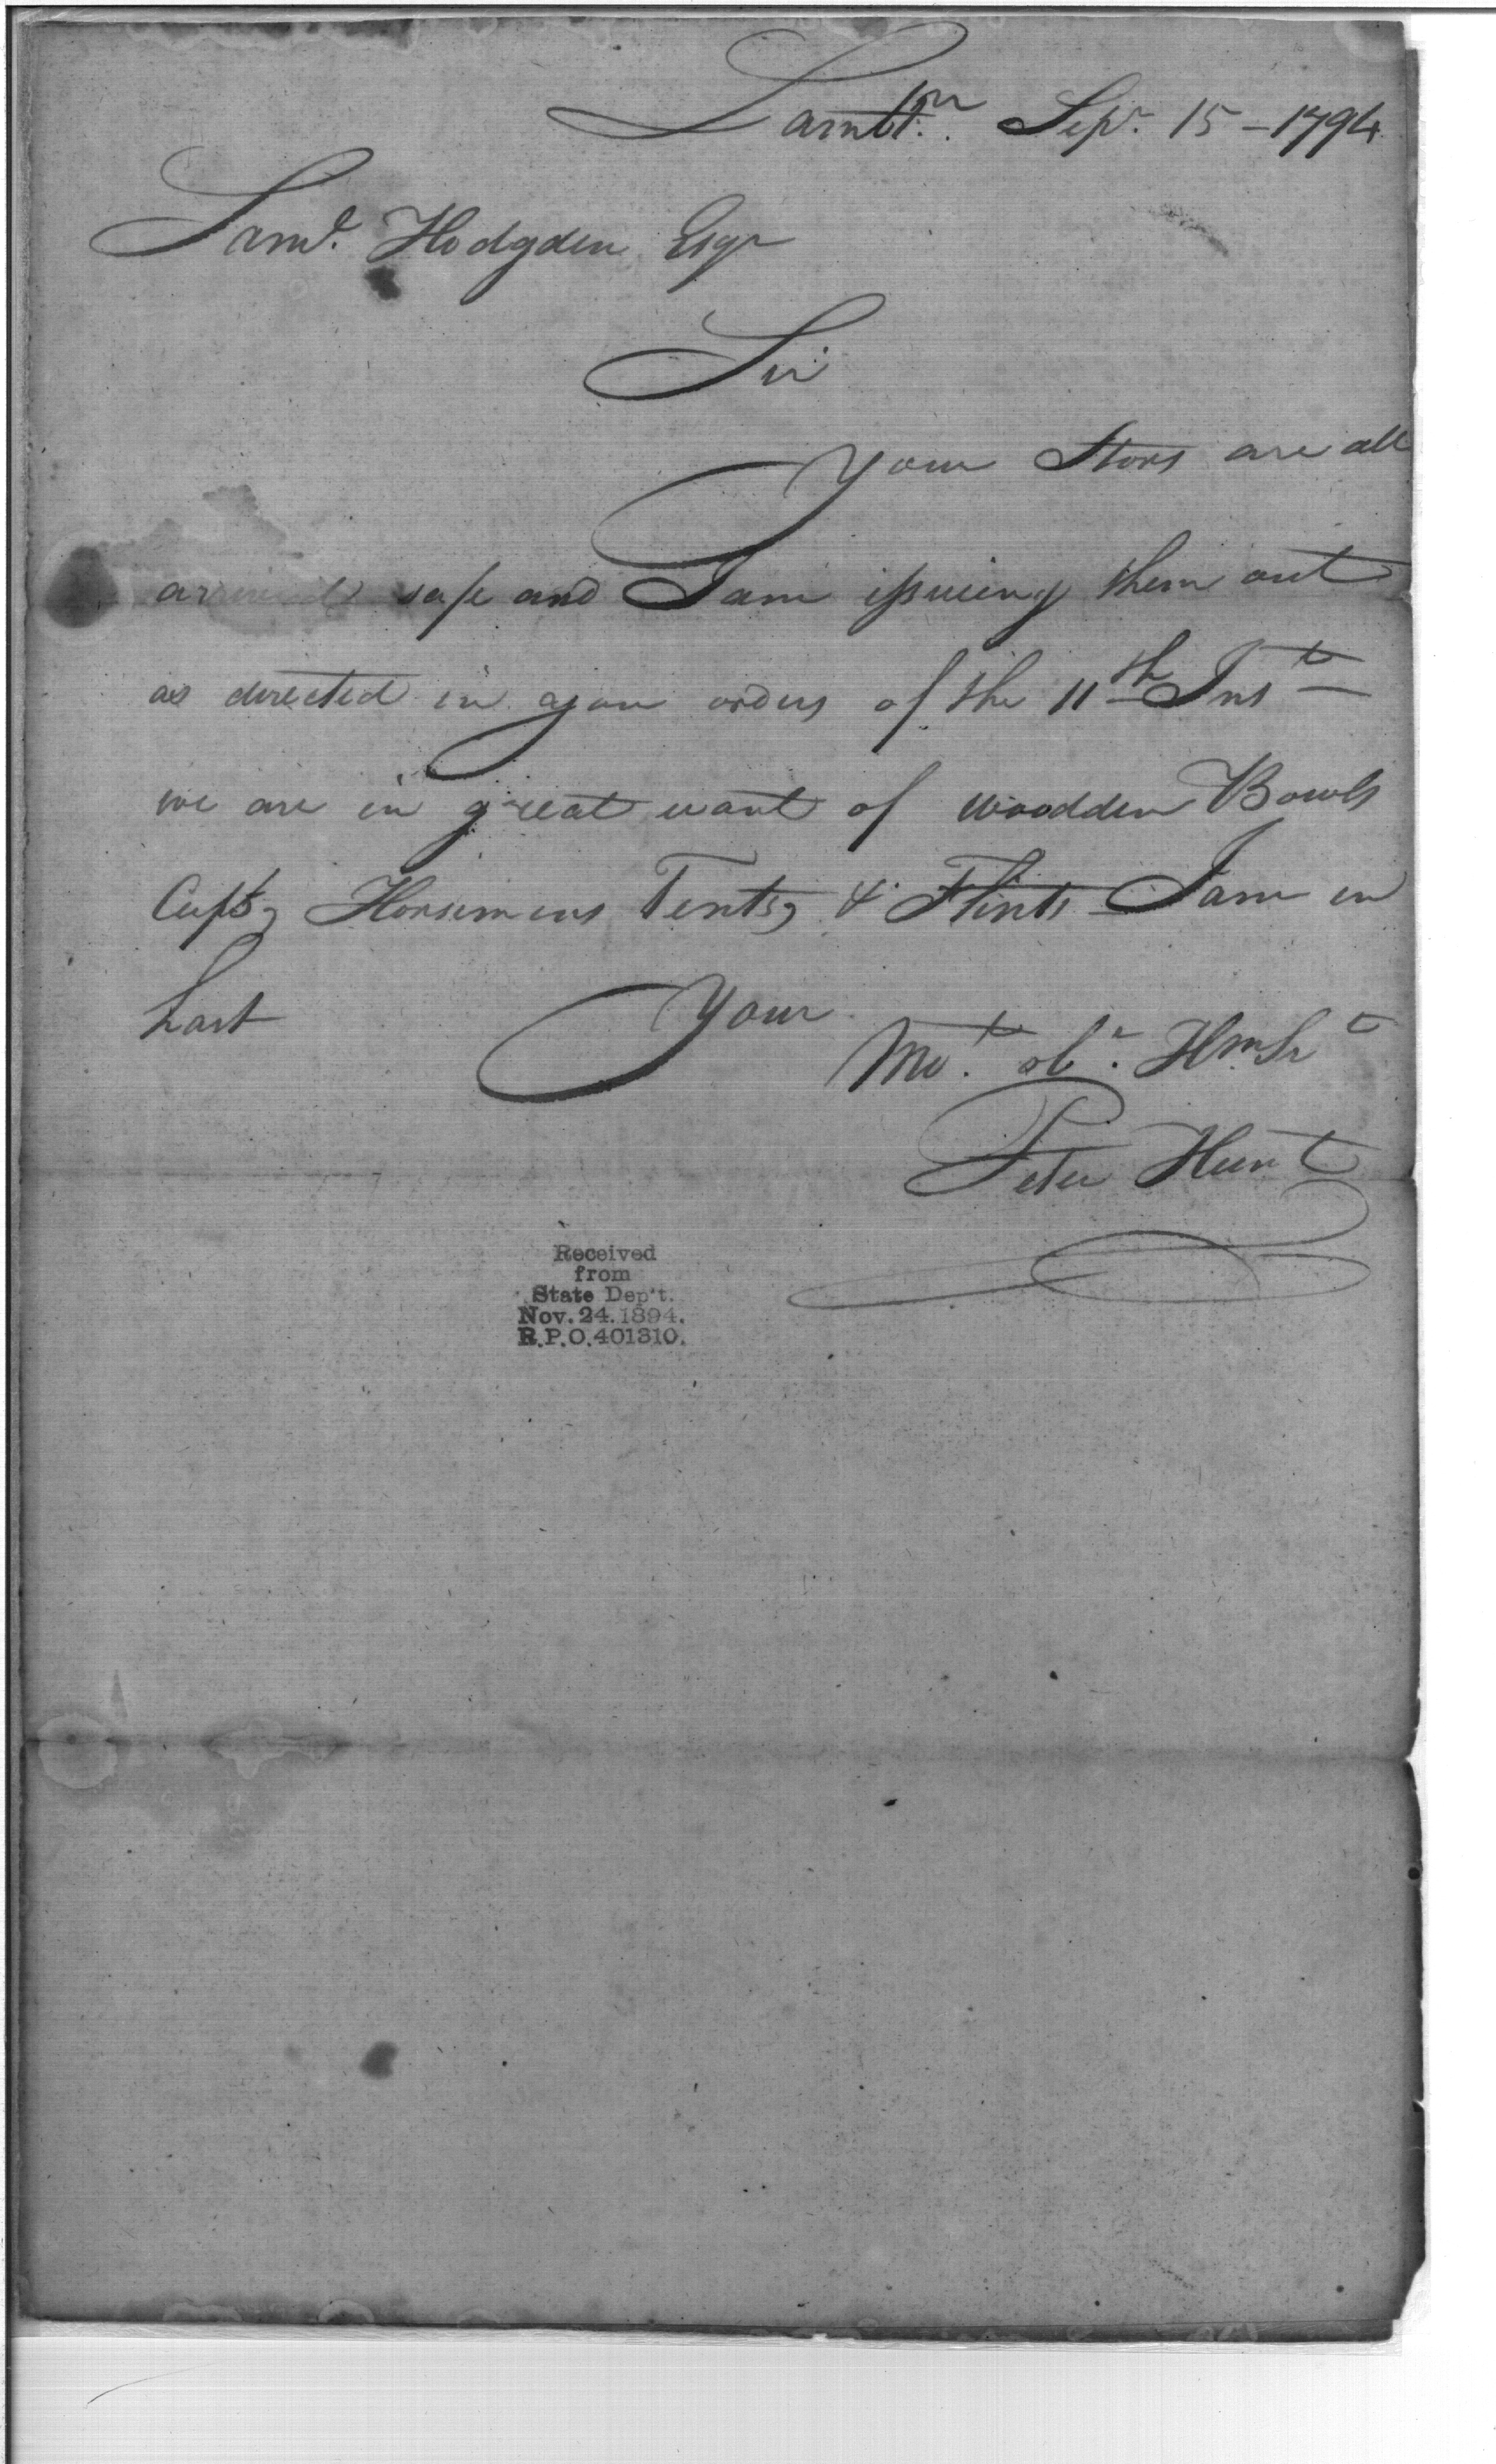 Lambtn. Sepr. 15 - 1794
Saml. Hodgden Esqr
Sir
Your Stors are all
arrived safe and I am issueing them out
as directed in your orders of the 11th Inst
we are in great want of woodden Bowls
Horsemens Tents, & Flints - I am in
hast Your
Mot. obt. Hm Srt
Peter Hunt
Received
from
State Dep't.
Nov. 24. 1894.
R.P.O. 401310.